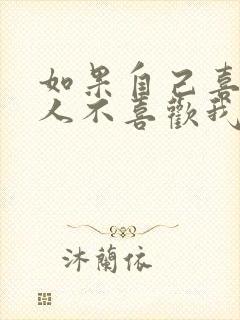 如果自己喜
人不喜歡我
沐蘭依